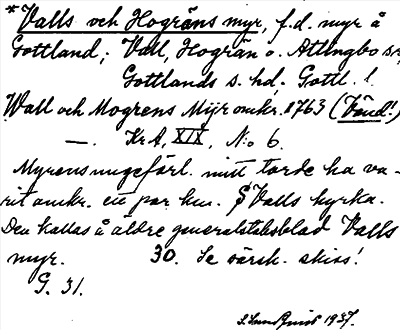 * Valls och Hogräns myr, f.d. myr å
Gottland; Vall, Hogrän o. Atlingbo snr,
Gottlands s. hd. Gottl. l.
Wall och Mogrens Myr omkr. 1763 (Vänd!)
—. KrA, XIX, No 6.
Myrens ungefärl. mitt torde ha va-
rit omkr. ett par km. S Valls kyrka.
Den kallas å äldre generalstabsblad Valls
myr. 30. Se särsk. skiss!
G. 31.
S. Lundquist 1937.